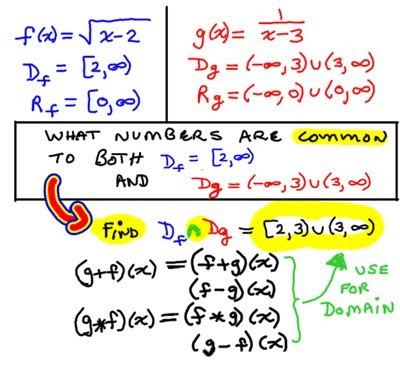 f(x) = √x-2
D_f = [2,∞)
R_f = [0,∞)
g(x) = 1/x-3
D_g = (-∞,3)∪(3,∞)
R_g = (-∞,0)∪(0,∞)
WHAT NUMBERS ARE COMMON
TO BOTH D_f = [2,∞)
AND D_g = (-∞,3)∪(3,∞)
FIND D_f ∩ D_g = [2,3)∪(3,∞)
(g+f)(x) = (f+g)(x)
(f-g)(x)
(g*f)(x) = (f*g)(x)
(g-f)(x)
USE
FOR
DOMAIN